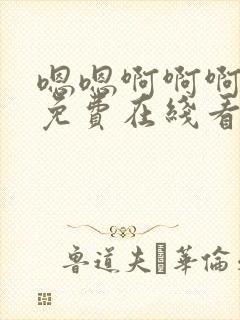 嗯嗯啊啊啊
免費在綫看
魯道夫�華倫